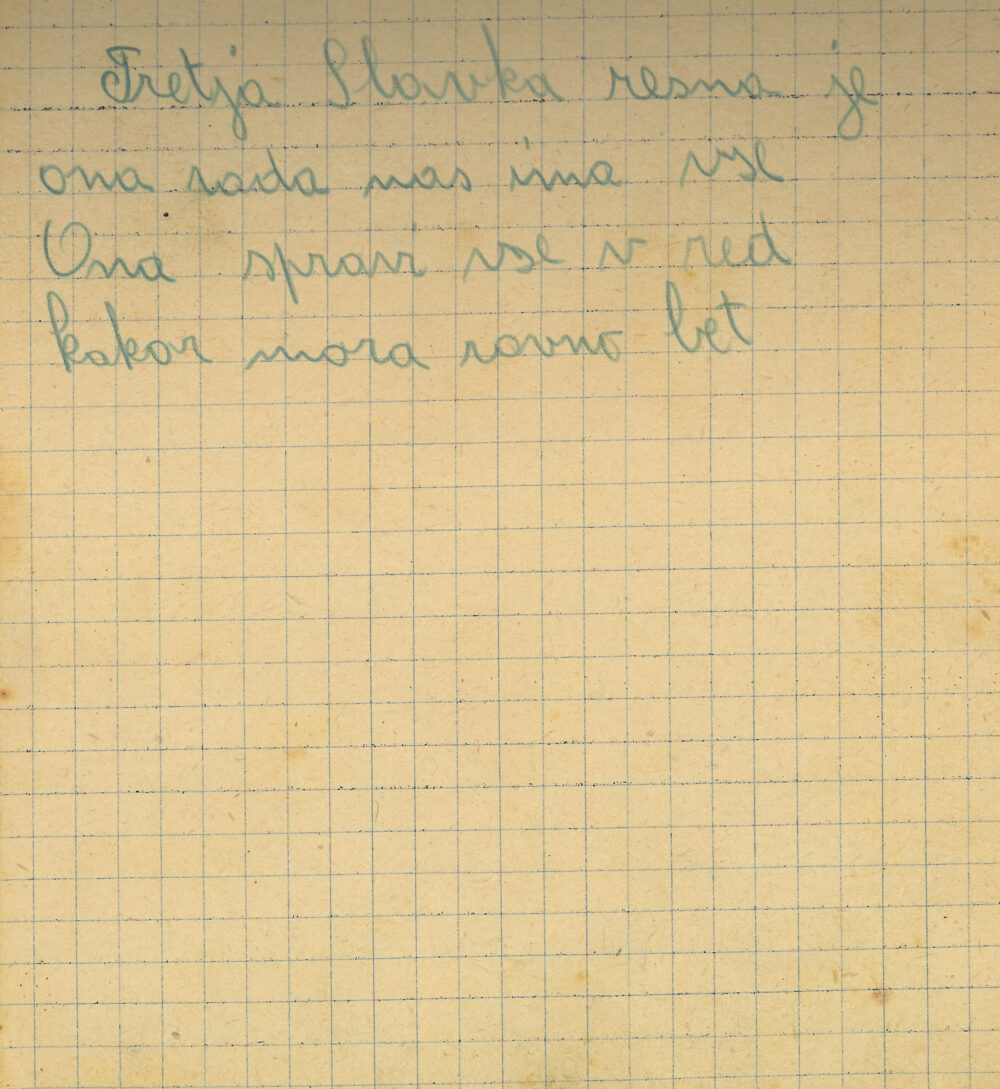 Tretja Slavka resna je
ona rada nas ima vse
Ona spravi vse v red
kakor mora ravno bet